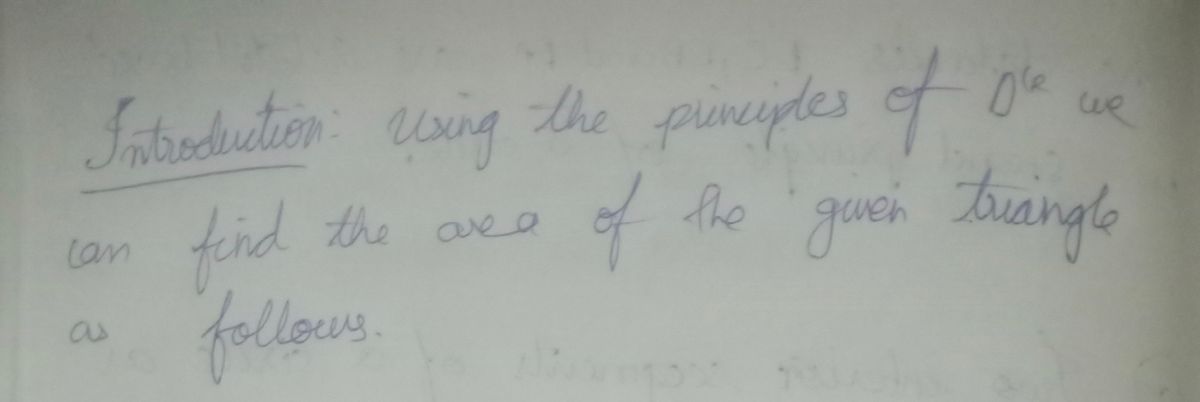 Introduction: Using the principles of Dle we
can find the area of the given triangle
as follows.